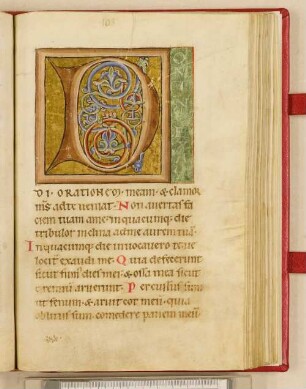 D
OMINE EX
DI· ORATIONEM· meam· & clamor
m̄s ad te veniat· Non avertas fa
ciem tuam a me· in quacumque die
tribulor inclina ad me aurem tuā·
In quacumque die invocavero te ve
lociter exaudi me· Quia defecerunt
sicut fum' dies mei· & ossa mea sicut
cremiū aruerunt· Percussus sum
ut fenum· & aruit cor meū· quia
oblitus sum comedere panem meū·